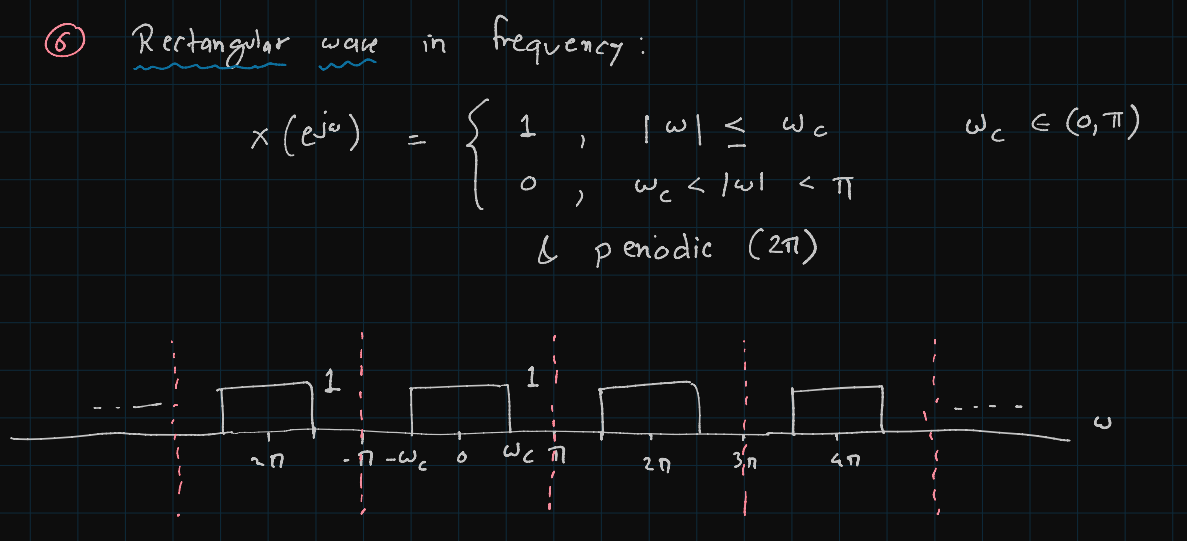 6 Rectangular wave in frequency :
X(e^jω) = { 1 , |ω| ≤ ωc ωc ∈ (0, π)
0 , ωc < |ω| < π
& periodic (2π)
1 1
2π -π -ωc 0 ωc π 2π 3π 4π ω